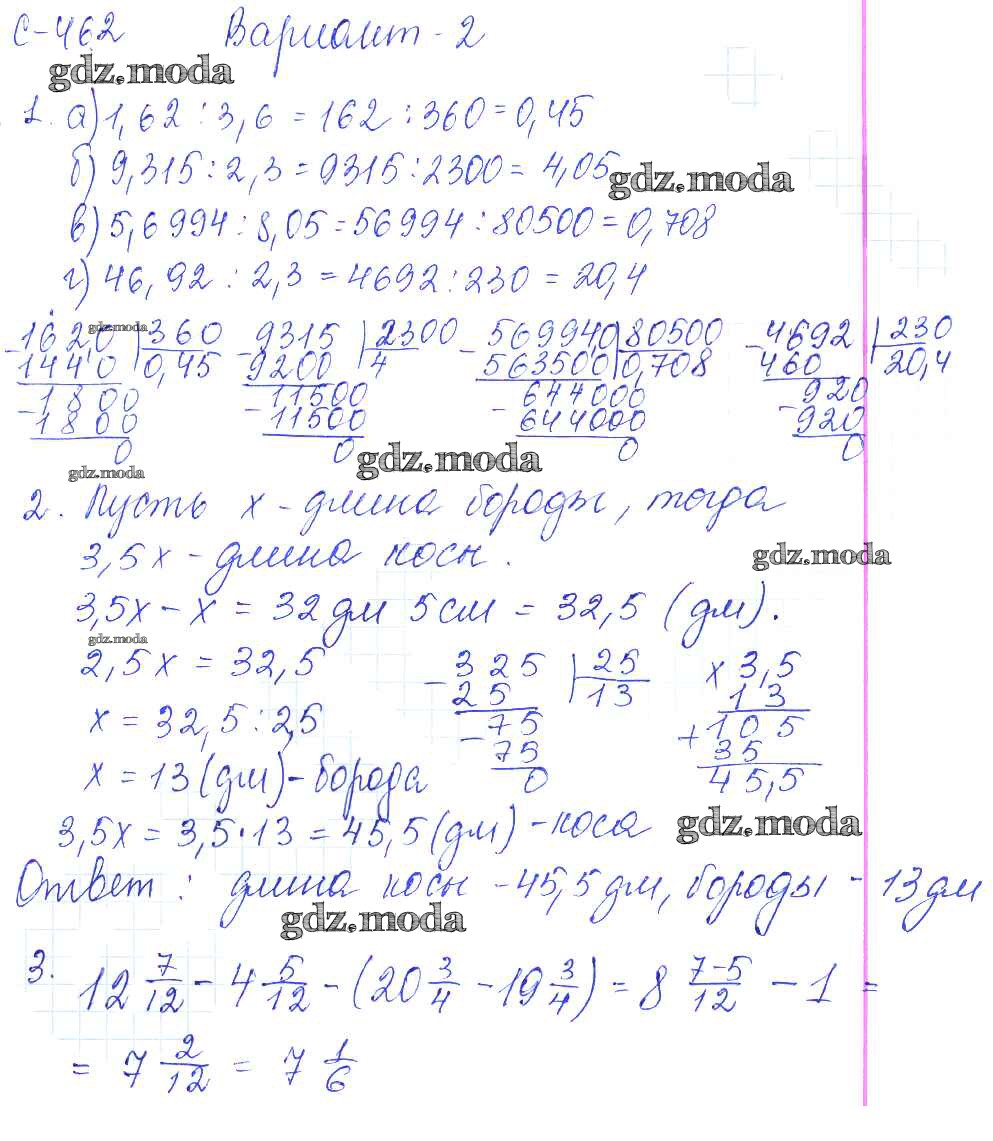 С-462 Вариант-2
gdz.moda
1. а) 1,62 : 3,6 = 162 : 360 = 0,45
б) 9,315 : 2,3 = 9315 : 2300 = 4,05
gdz.moda
в) 5,6994 : 8,05 = 56994 : 80500 = 0,708
г) 46,92 : 2,3 = 4692 : 230 = 20,4
gdz.moda
-1620 | 360 -9315 | 2300 -569940 | 80500 -4692 | 230
1440 0,45 9200 4 563500 0,708 460 20,4
-1800 -11500 -644000 -920
1800 11500 644000 920
0 0 0 0
gdz.moda
gdz.moda
2. Пусть х - длина бороды, тогда
3,5х - длина косы.
gdz.moda
3,5х - х = 32 дм 5 см = 32,5 (дм).
gdz.moda
2,5х = 32,5 -325 | 25 х 3,5
25 13 13
х = 32,5 : 2,5 -75 +105
75 35
х = 13 (дм) - борода 0 45,5
3,5х = 3,5·13 = 45,5 (дм) - коса
gdz.moda
Ответ: длина косы - 45,5 дм, бороды - 13 дм
gdz.moda
3. 12 7/12 - 4 5/12 - (20 3/4 - 19 3/4) = 8 7-5/12 - 1 =
= 7 2/12 = 7 1/6